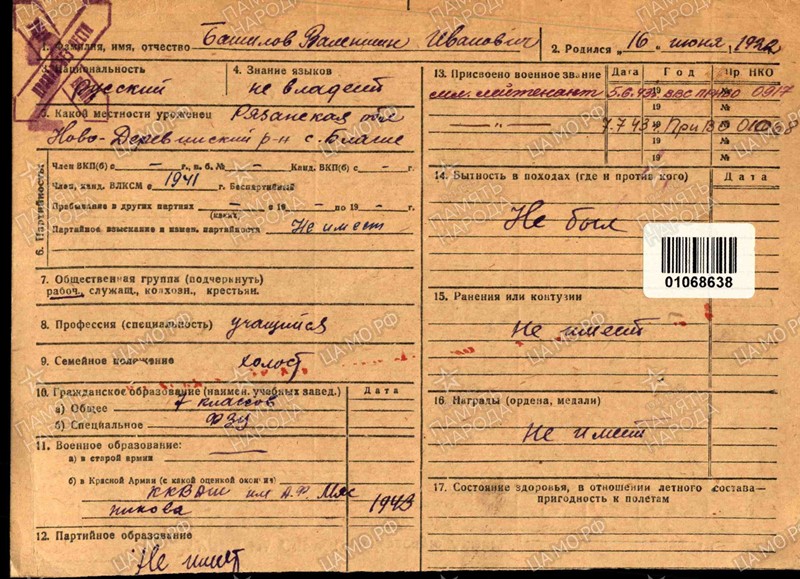 1. Фамилия, имя, отчество Башилов Валентин Иванович
2. Родился "16" июня 1922
3. Национальность русский
4. Знание языков не владеет
5. Какой местности уроженец Рязанская обл
Ново-Деревенский р-н с.
6. Партийность:
Член ВКП(б) с — г., п. б. № — Канд. ВКП(б) с — г.
Член, канд. ВЛКСМ с 1941 г. Беспартийный
Пребывание в других партиях — с 19 — по 19 — г.
(каких)
Партийное взыскание и измен. партийности Не имеет
7. Общественная группа (подчеркнуть)
рабоч., служащ., колхозн., крестьян.
8. Профессия (специальность) учащийся
9. Семейное положение холост
10. Гражданское образование (наимен. учебных завед.) Дата
а) Общее 7 классов
б) Специальное ФЗУ
11. Военное образование:
а) в старой армии —
б) в Красной Армии (с какой оценкой окончил)
ККВАШ им А.Ф. Мяс
никова 1943
12. Партийное образование
Не имеет
13. Присвоено военное звание Дата Год Пр. НКО
мл. лейтенант 5.6. 1943 ВВС ПРИВО № 0917
—"— —"— 7.7 43 г ПриВО №
19 №
19 №
14. Бытность в походах (где и против кого) Дата
Не был
01068638
15. Ранения или контузии
не имеет
16. Награды (ордена, медали)
не имеет
17. Состояние здоровья, в отношении летного состава—
пригодность к полетам
ПАМЯТЬ НАРОДА
ЦАМО.РФ